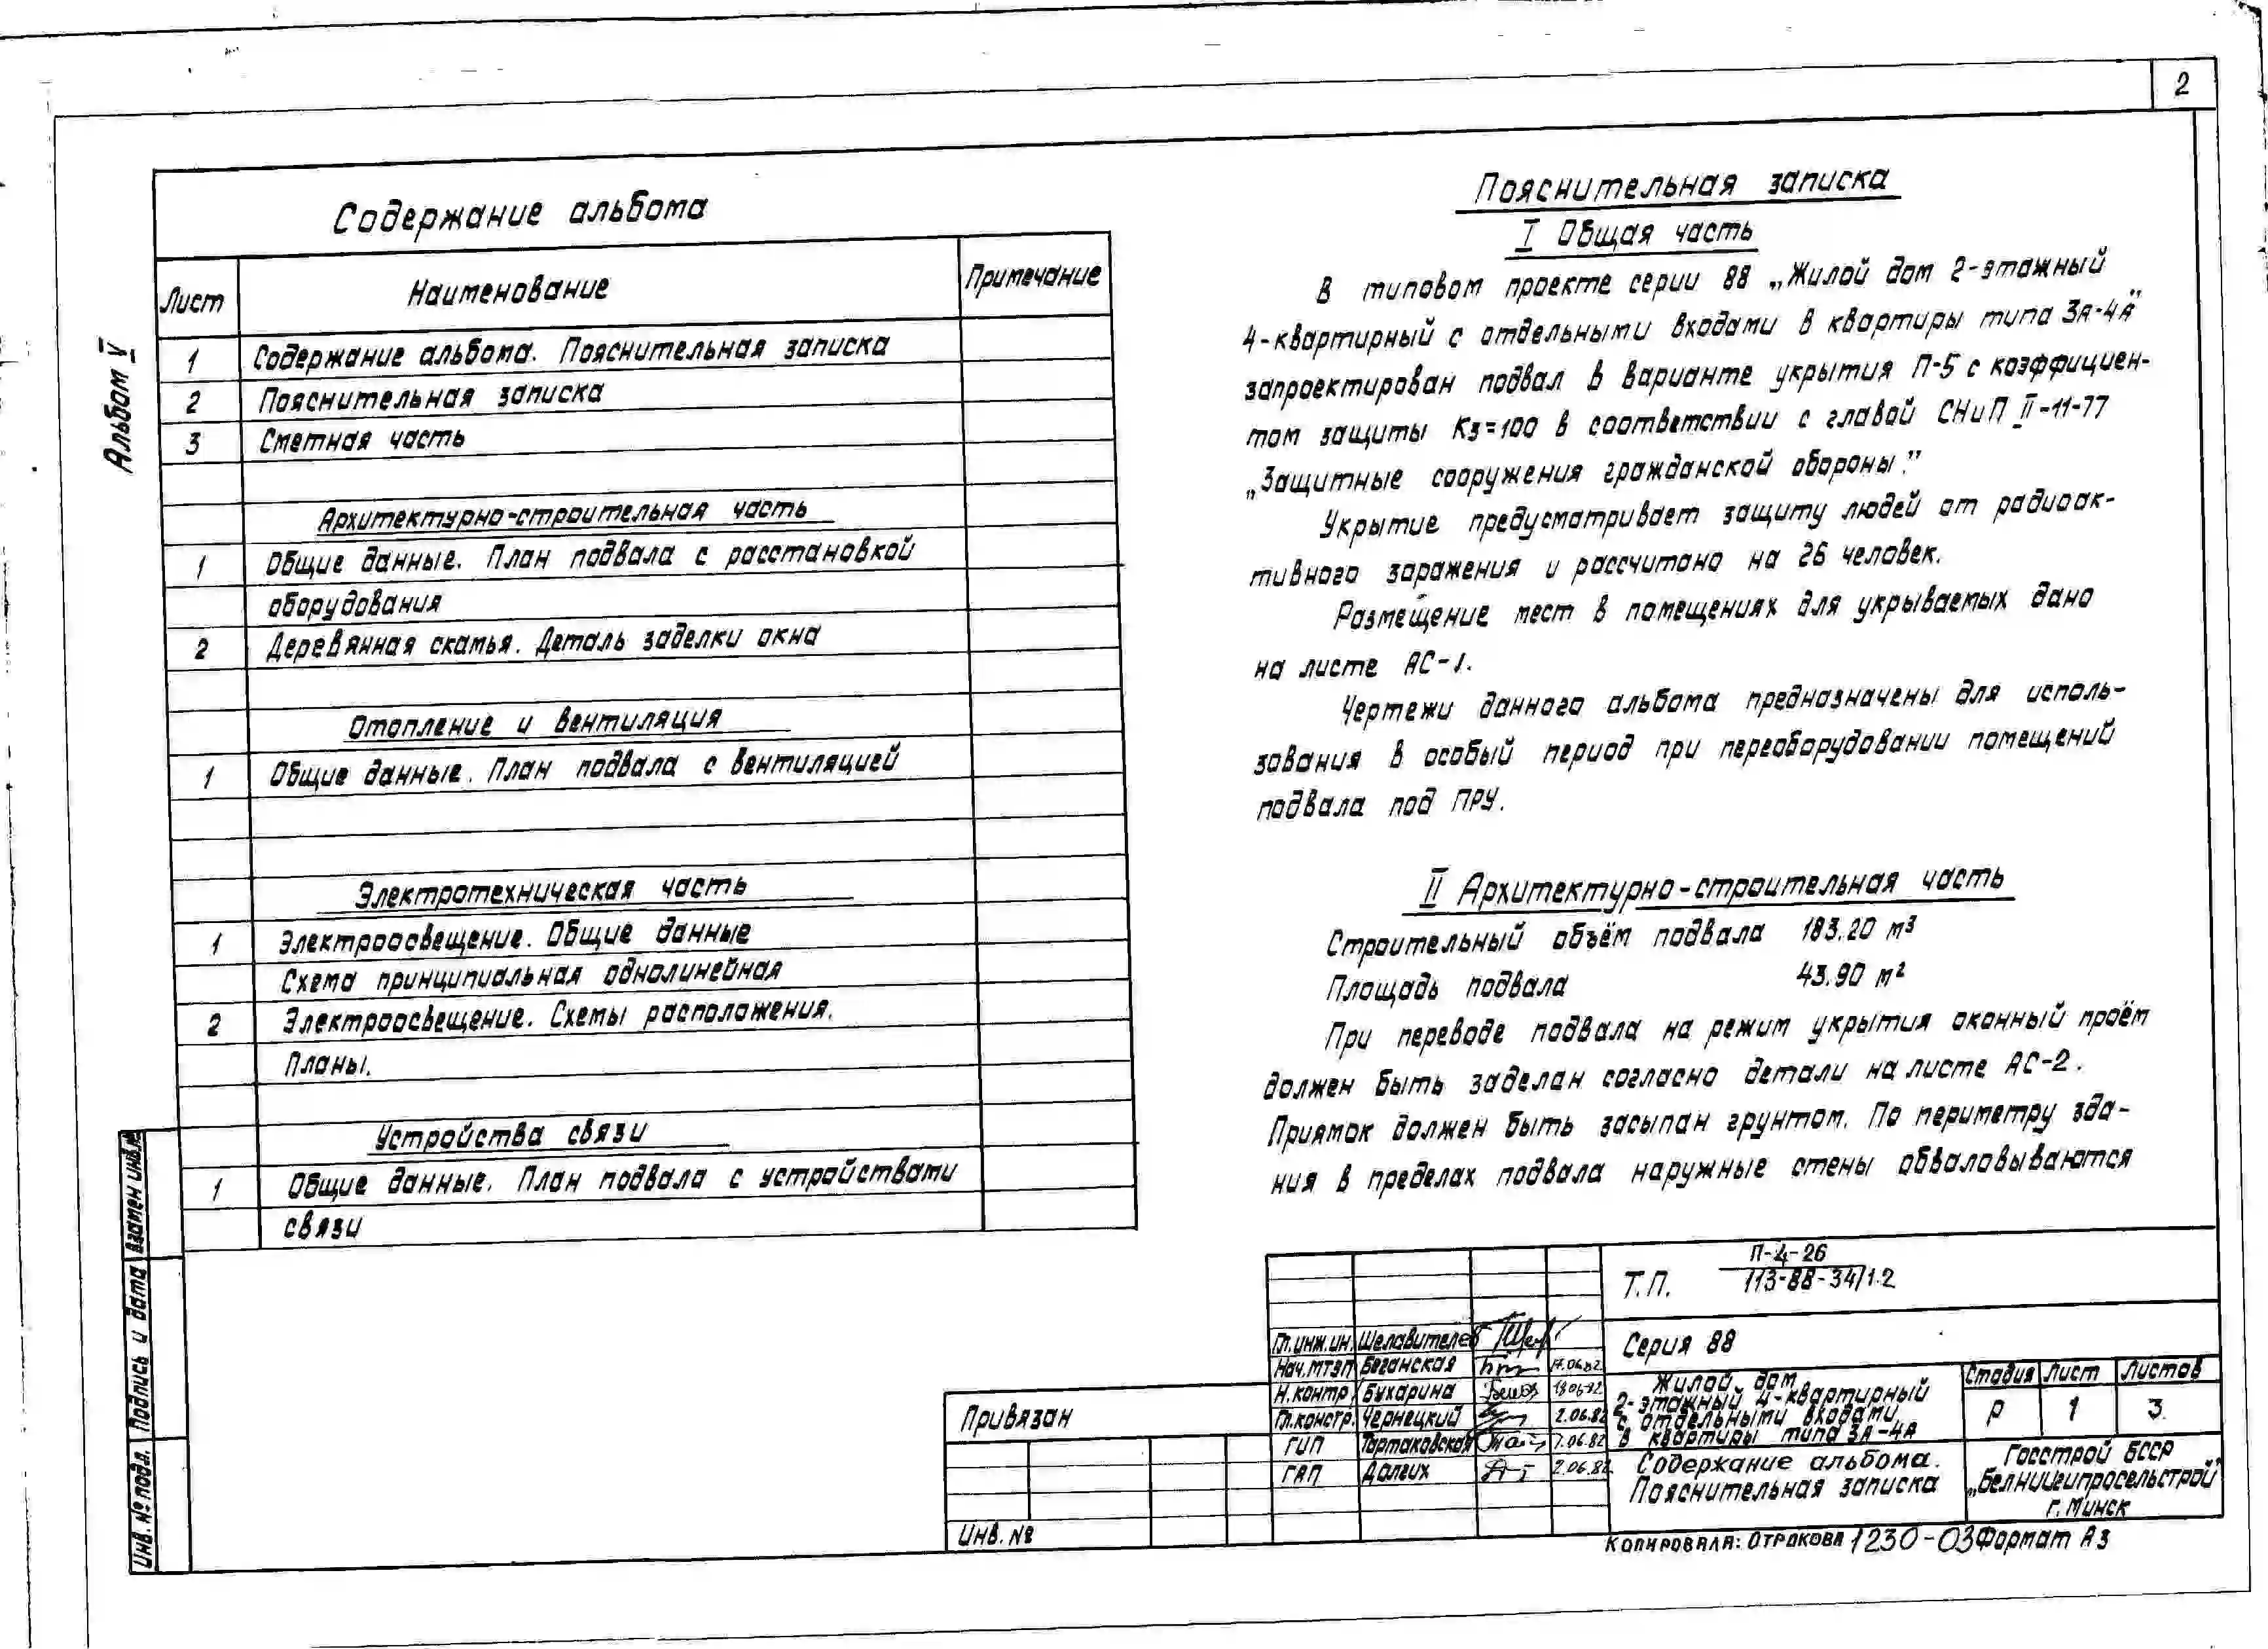 2
Альбом V
Содержание альбома
Лист Наименование Примечание
1 Содержание альбома. Пояснительная записка
2 Пояснительная записка
3 Сметная часть
Архитектурно-строительная часть
1 Общие данные. План подвала с расстановкой
оборудования
2 Деревянная скамья. Деталь заделки окна
Отопление и вентиляция
1 Общие данные. План подвала с вентиляцией
Электротехническая часть
1 Электроосвещение. Общие данные
Схема принципиальная однолинейная
2 Электроосвещение. Схемы расположения.
Планы.
Устройства связи
1 Общие данные. План подвала с устройствами
связи
Пояснительная записка
I Общая часть
В типовом проекте серии 88 „Жилой дом 2-этажный
4-квартирный с отдельными входами в квартиры типа 3А-4А"
запроектирован подвал в варианте укрытия П-5 с коэффициен-
том защиты Кз=100 в соответствии с главой СНиП II-11-77
„Защитные сооружения гражданской обороны."
Укрытие предусматривает защиту людей от радиоак-
тивного заражения и рассчитано на 26 человек.
Размещение мест в помещениях для укрываемых дано
на листе АС-1.
Чертежи данного альбома предназначены для исполь-
зования в особый период при переоборудовании помещений
подвала под ПРУ.
II Архитектурно-строительная часть
Строительный объём подвала 183.20 м³
Площадь подвала 43.90 м²
При переводе подвала на режим укрытия оконный проём
должен быть заделан согласно детали на листе АС-2.
Приямок должен быть засыпан грунтом. По периметру зда-
ния в пределах подвала наружные стены обваловываются
Взамен инв.№
Подпись и дата
Инв. № подл.
Привязан
Инв. №
Гл.инж.ин. Шелавителев
Нач.МТЭП Беганская 17.06.82
Н.контр. Бухарина 18.06.82
Гл.констр. Чернецкий 2.06.82
ГИП Тартаковская 1.06.82
ГАП Далгих 2.06.82
П-4-26
Т.П. 113-88-34/1.2
Серия 88
Жилой дом
2-этажный 4-квартирный
с отдельными входами
в квартиры типа 3А-4А
Стадия Лист Листов
Р 1 3
Содержание альбома.
Пояснительная записка
Госстрой БССР
„Белниигипросельстрой"
г. Минск
Копировала: Отракова 1230-03 Формат А3